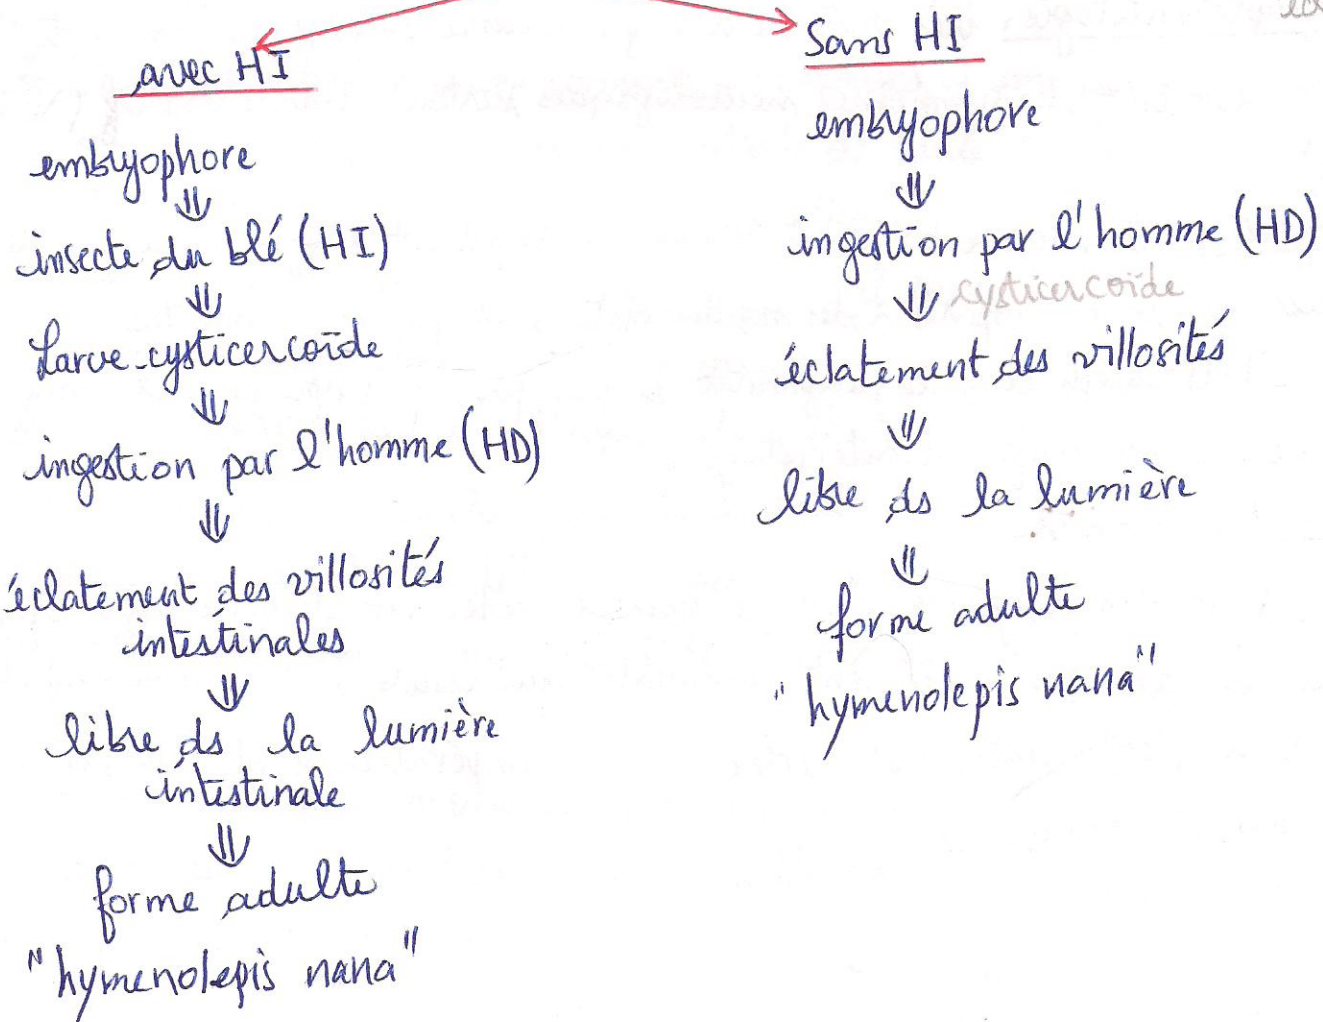 avec HI
embryophore
⇓
insecte du blé (HI)
⇓
Larve cysticercoïde
⇓
ingestion par l'homme (HD)
⇓
éclatement des villosités
intestinales
⇓
libre ds la lumière
intestinale
⇓
forme adulte
"hymenolepis nana"
Sans HI
embryophore
⇓
ingestion par l'homme (HD)
⇓ cysticercoïde
éclatement des villosités
⇓
libre ds la lumière
⇓
forme adulte
"hymenolepis nana"